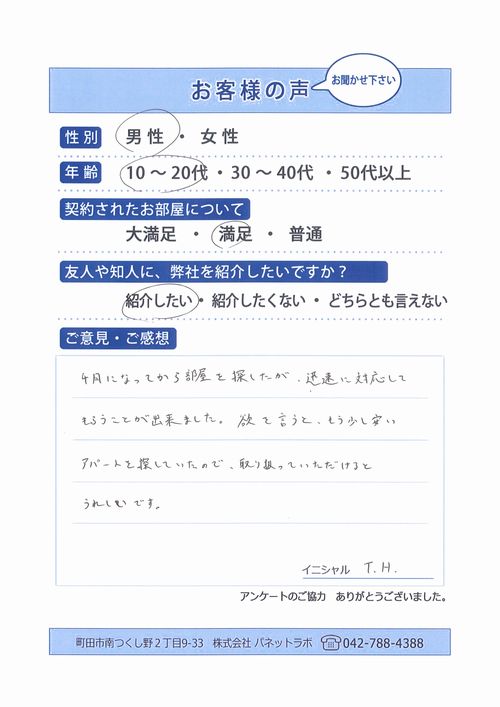 お客様の声
お聞かせ下さい
性別 男性 ・ 女性
年齢 10～20代・30～40代・50代以上
契約されたお部屋について
大満足 ・ 満足 ・ 普通
友人や知人に、弊社を紹介したいですか？
紹介したい・紹介したくない・どちらとも言えない
ご意見・ご感想
4月になってから部屋を探したが、迅速に対応して
もらうことが出来ました。欲を言うと、もう少し安い
アパートを探していたので、取り扱っていただけると
うれしいです。
イニシャル T.H.
アンケートのご協力 ありがとうございました。
町田市南つくし野2丁目9-33 株式会社 パネットラボ ☏042-788-4388